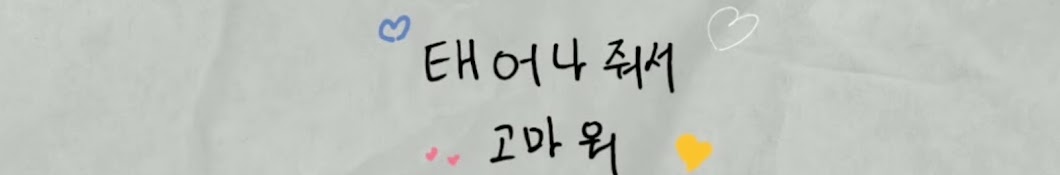 태어나 줘서
고마워